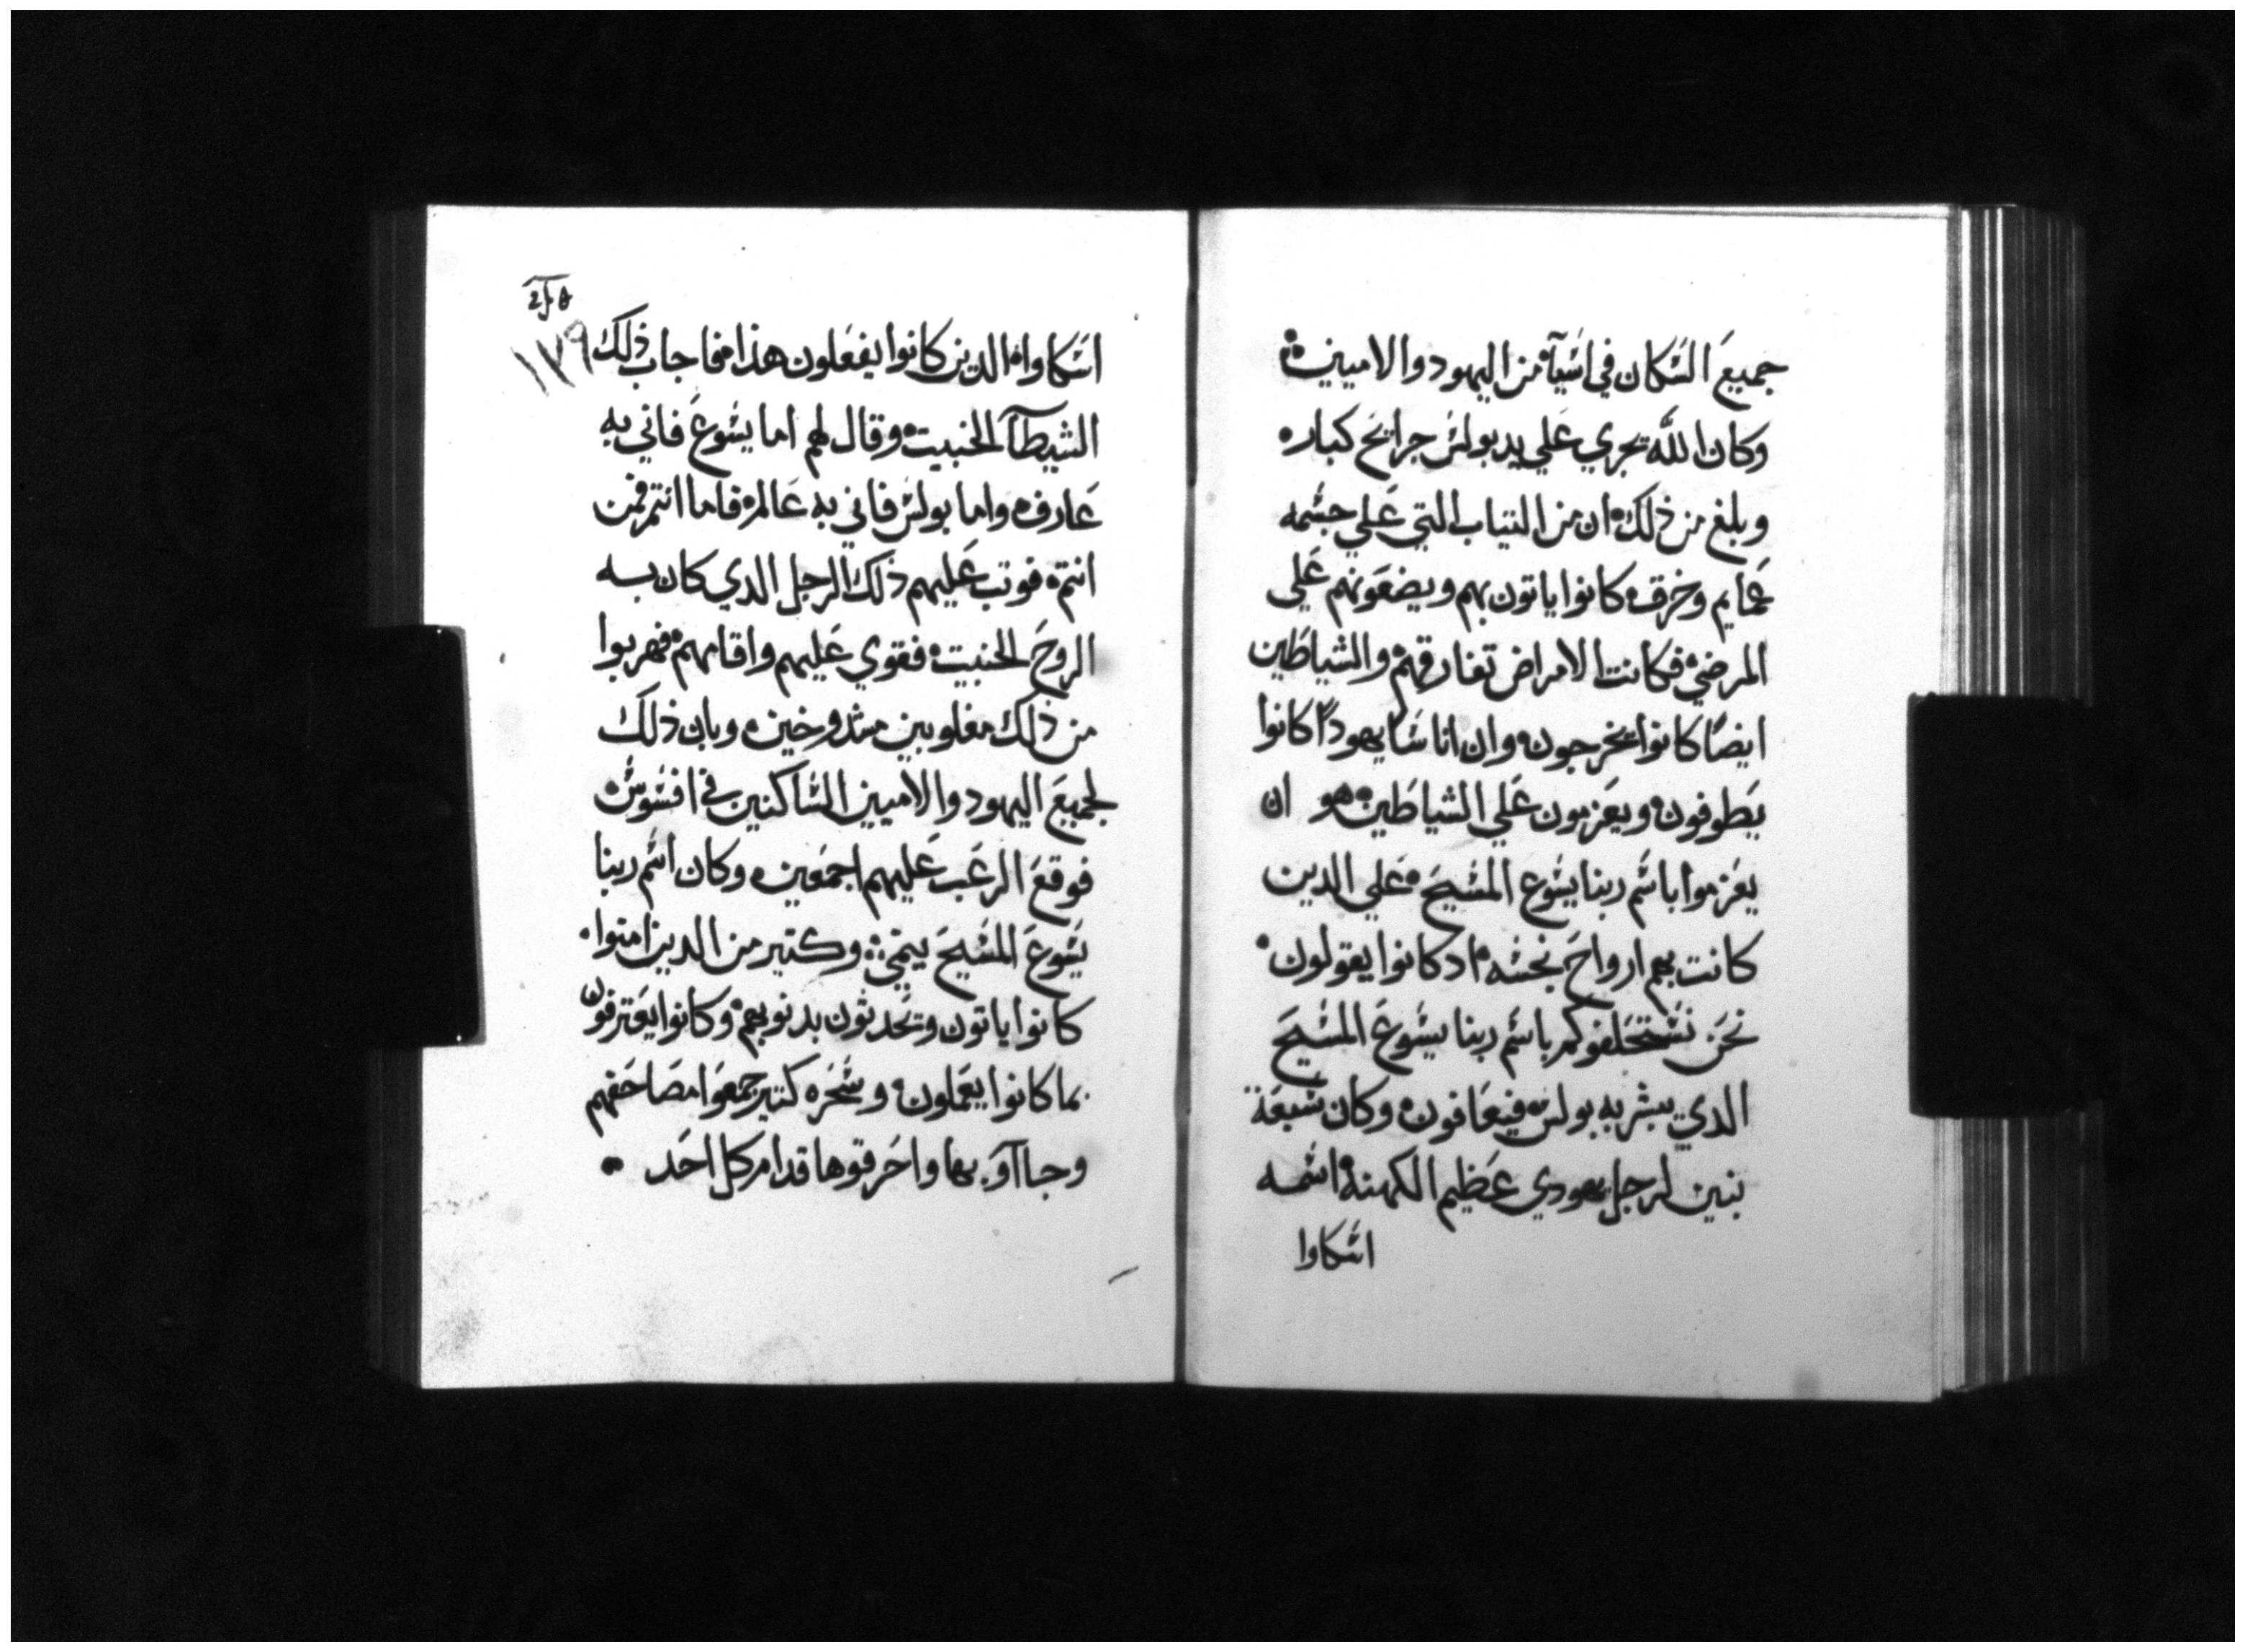 جميع السكان في اسيآ من اليهود والاميين
وكان الله يجري علي يد بولس جرايح كبار
وبلغ من ذلك ان من التياب التي علي جسمه
عمايم وخرق كانوا ياتون بهم ويضعونهم علي
المرضي فكانت الامراض تفارقهم والشياطين
ايضا كانوا يخرجون وان اناسا يهودا كانوا
يطوفون ويعزمون علي الشياطين هو ان
يعزموا باسم ربنا يسوع المسيح علي الدين
كانت بهم ارواح نجسه اد كانوا يقولون
نحن نستحلفوكم باسم ربنا يسوع المسيح
الدي يبشر به بولس فيعافون وكان سبعة
بنين لرجل يهودي عظيم الكهنة اسمه
اسكاوا
١٧٩
اسكاوا الدين كانوا يفعلون هذا فاجاب ذلك
الشيطآ الخبيت وقال لهم اما يسوع فاني به
عارف واما بولس فاني به عالم فاما انتم فمن
انتم فوتب عليهم ذلك الرجل الدي كان به
الروح الخبيت فقوي عليهم واقامهم فهربوا
من ذلك مغلوبين مشدوخين وبان ذلك
لجميع اليهود والاميين الساكنين في افسوس
فوقع الرعب عليهم اجمعين وكان اسم ربنا
يسوع المسيح ينمي وكتير من الدين امنوا
كانوا ياتون وتحدثون بدنوبهم وكانوا يعترفون
بما كانوا يعملون وسحره كتير جمعوا مصاحفهم
وجاآو بها واحرقوها قدام كل احد